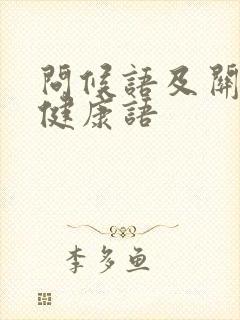 問候語及關
健康語
李多魚